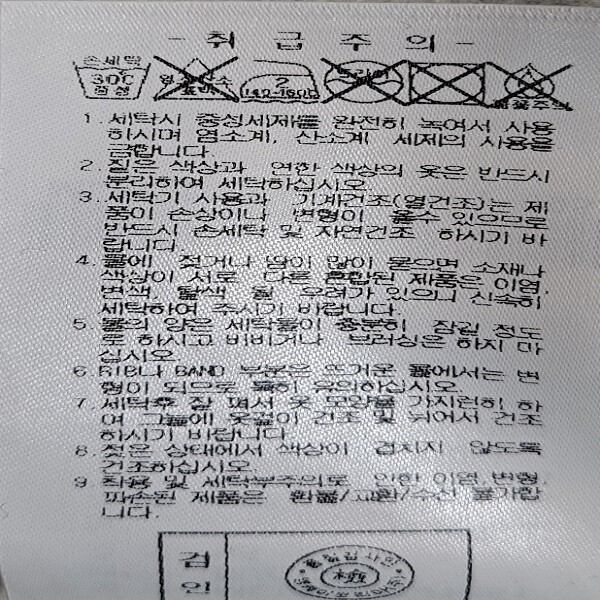 - 취 급 주 의 -
손세탁
30℃
중성
염소산소
표백
2
140-160℃
드라이
불꽃주의
1. 세탁시 중성세제를 완전히 녹여서 사용
하시며 염소계, 산소계 세제의 사용을
금합니다.
2. 짙은 색상과 연한 색상의 옷은 반드시
분리하여 세탁하십시오.
3. 세탁기 사용과 기계건조(열건조)는 제
품이 손상이나 변형이 올수 있으므로
반드시 손세탁 및 자연건조 하시기 바
랍니다.
4. 물에 젖거나 땀이 많이 묻으면 소재나
색상이 서로 다른 혼합된 제품은 이염,
변색, 탈색 될 우려가 있으니 신속히
세탁하여 주시기 바랍니다.
5. 물의 양은 세탁물이 충분히 잠길 정도
로 하시고 비비거나 브러싱은 하지 마
십시오
6. RIB나 BAND 부분은 뜨거운 물에서는 변
형이 되므로 특히 유의하십시오.
7. 세탁후 잘 펴서 옷 모양을 가지런히 하
여 그늘에 옷걸이 건조 및 뉘어서 건조
하시기 바랍니다.
8. 젖은 상태에서 색상이 겹치지 않도록
건조하십시오.
9 착용 및 세탁부주의로 인한 이염,변형,
파손된 제품은 환불/교환/수선 불가합
니다.
검
인
檢